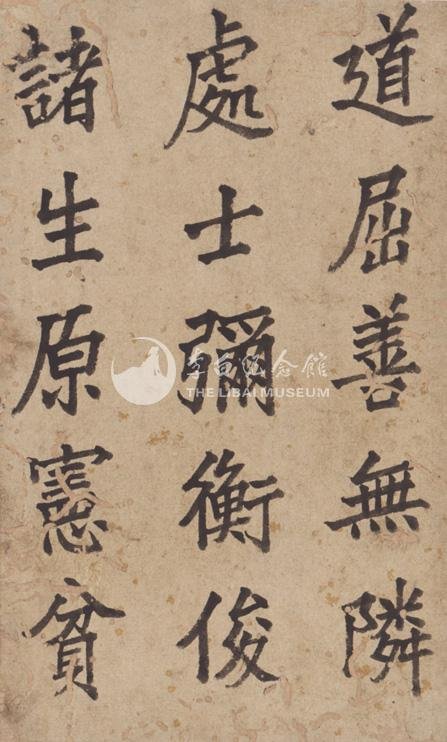 道屈善無隣
處士彌衡俊
諸生原憲貧
李白纪念館
THE LIBAI MUSEUM